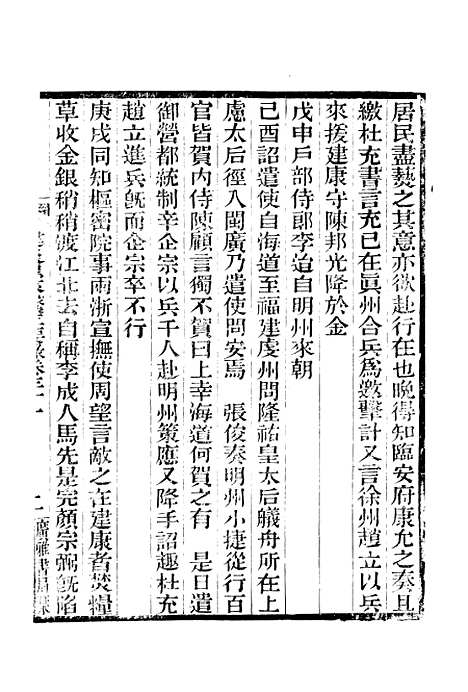 居民盡爇之其意亦欲赴行在也晚得知臨安府康允之奏且
繳杜充書言充已在眞州合兵爲邀擊計又言徐州趙立以兵
來援建康守陳邦光降於金
戊申戶部侍郎李迨自明州來朝
己酉詔遣使自海道至福建虔州問隆祐皇太后艤舟所在上
慮太后徑入閩廣乃遣使問安焉　張俊奏明州小捷從行百
官皆賀內侍陳顧言獨不賀曰上幸海道何賀之有　是日遣
御營都統制辛企宗以兵千人赴明州策應又降手詔趣杜充
趙立進兵旣而企宗卒不行
庚戌同知樞密院事兩浙宣撫使周望言敵之在建康者焚糧
草收金銀稍稍渡江北去自稱李成人馬先是完顏宗弼旣陷
二
廣雅書局